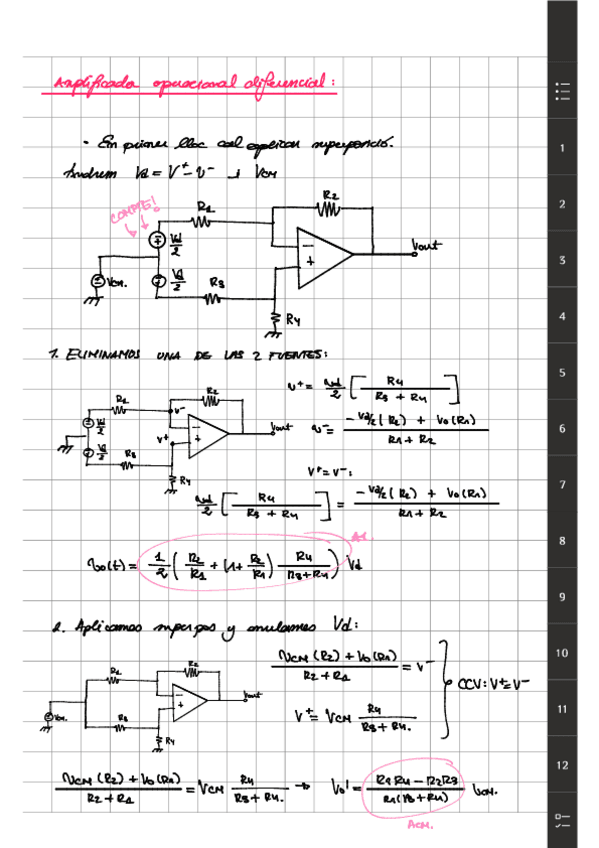 Amplificador operacional diferencial:
• En primer lloc cal aplicar superposició.
Tindrem Vd = V⁺ - V⁻ i VCM
COMPTE!
R1
R2
Vd/2
Vout
VCM.
Vd/2
R3
R4
1. ELIMINAMOS UNA DE LAS 2 FUENTES:
R1
R2
V⁻
Vd/2
V⁺
Vout
Vd/2
R3
R4
v⁺ = vd/2 [ R4 / (R3 + R4) ]
v⁻ = (-Vd/2 (R2) + Vo (R1)) / (R1 + R2)
V⁺ = V⁻:
vd/2 [ R4 / (R3 + R4) ] = (-Vd/2 (R2) + Vo (R1)) / (R1 + R2)
vo(t) = 1/2 ( R2/R1 + (1 + R2/R1) R4/(R3+R4) ) Vd
Ad.
2. Aplicamos superpos y anulamos Vd:
R1
R2
Vout
VCM.
R3
R4
(VCM (R2) + Vo (R1)) / (R2 + R1) = V⁻
V⁺ = VCM R4 / (R3 + R4.)
CCV: V⁺ = V⁻
(VCM (R2) + Vo (R1)) / (R2 + R1) = VCM R4 / (R3 + R4.) → Vo' = (R1R4 - R2R3) / (R1(R3 + R4)) VCM.
ACM.
1
2
3
4
5
6
7
8
9
10
11
12